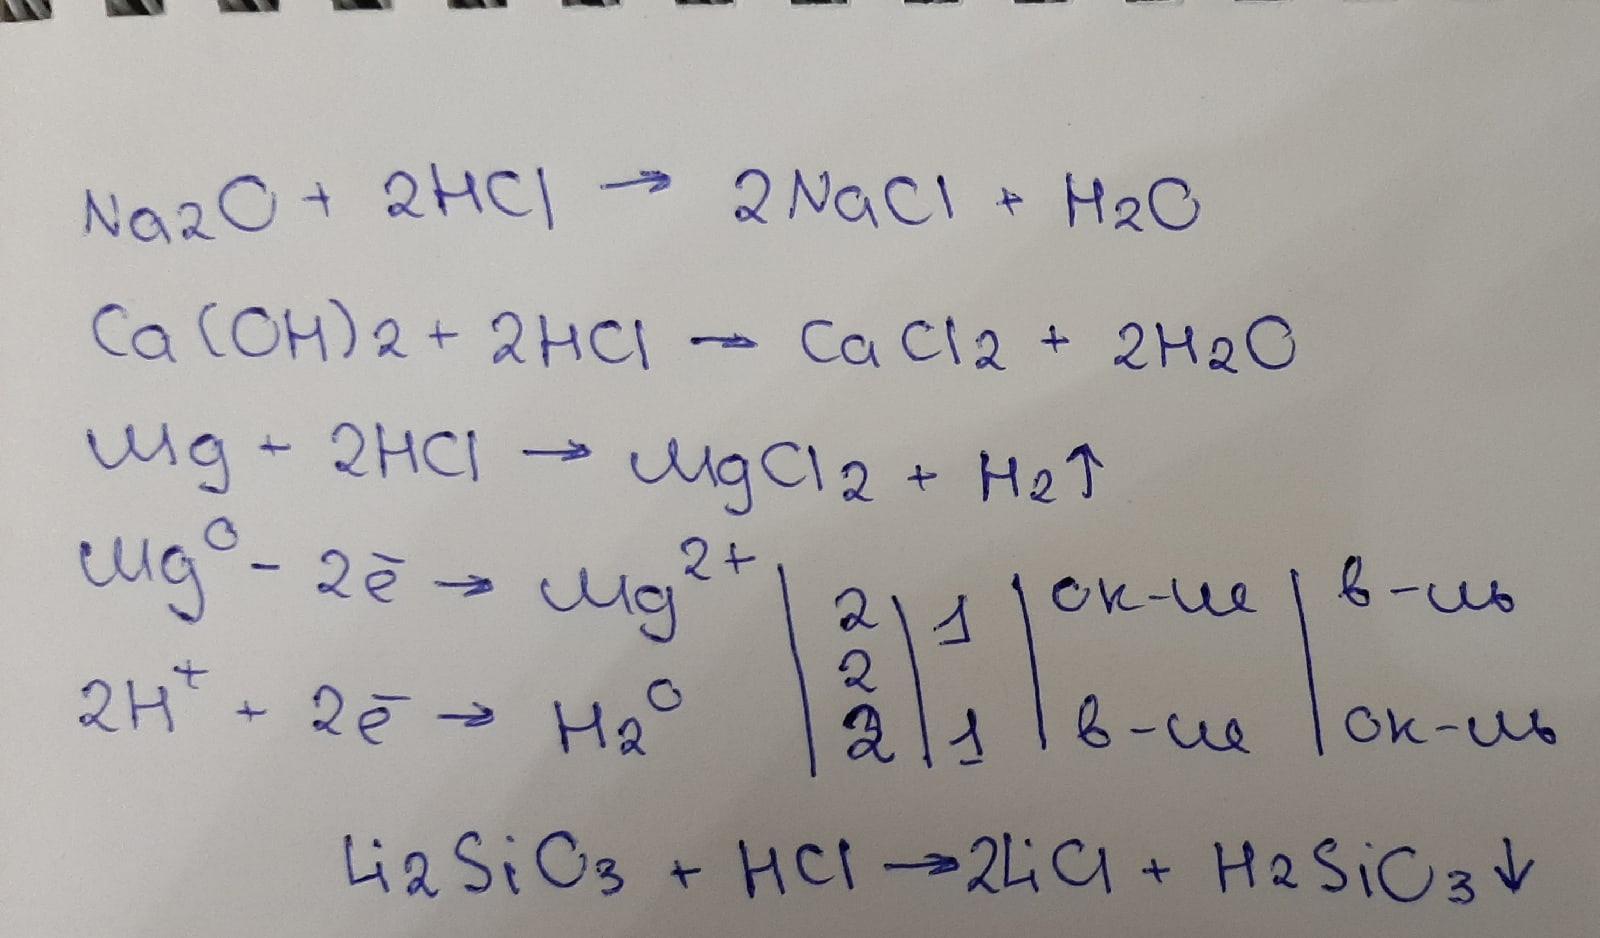 Na2O + 2HCl → 2NaCl + H2O
Ca(OH)2 + 2HCl → CaCl2 + 2H2O
Mg + 2HCl → MgCl2 + H2↑
Mg⁰ - 2ē → Mg²⁺ | 2 | 1 | ок-ие | в-ль
2
2H⁺ + 2ē → H2⁰ | 2 | 1 | в-ие | ок-ль
Li2SiO3 + HCl → 2LiCl + H2SiO3↓